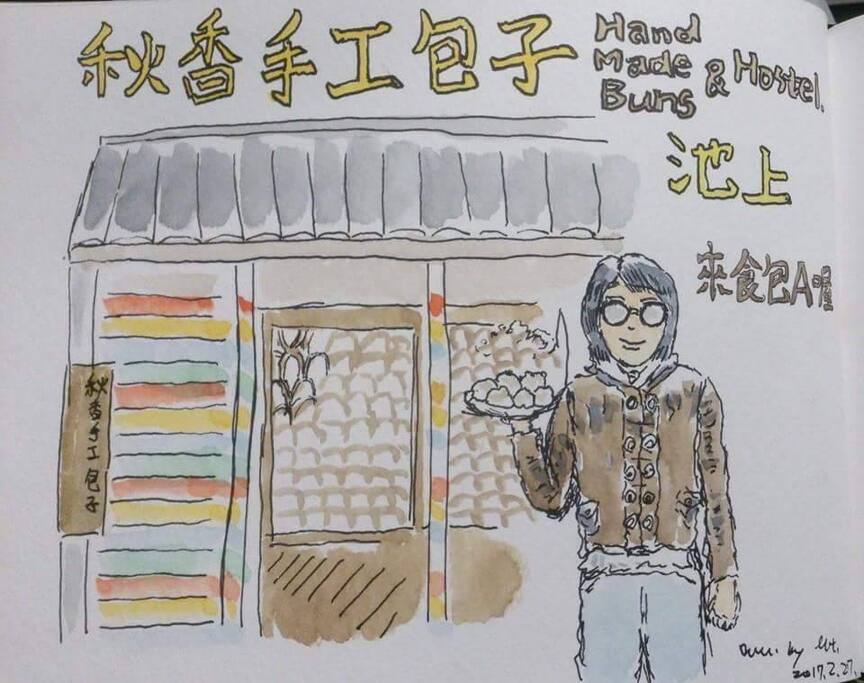 秋香手工包子
Hand
Made
Buns
& Hostel.
池上
來食包A喔
秋香手工包子
by
2017.2.27.